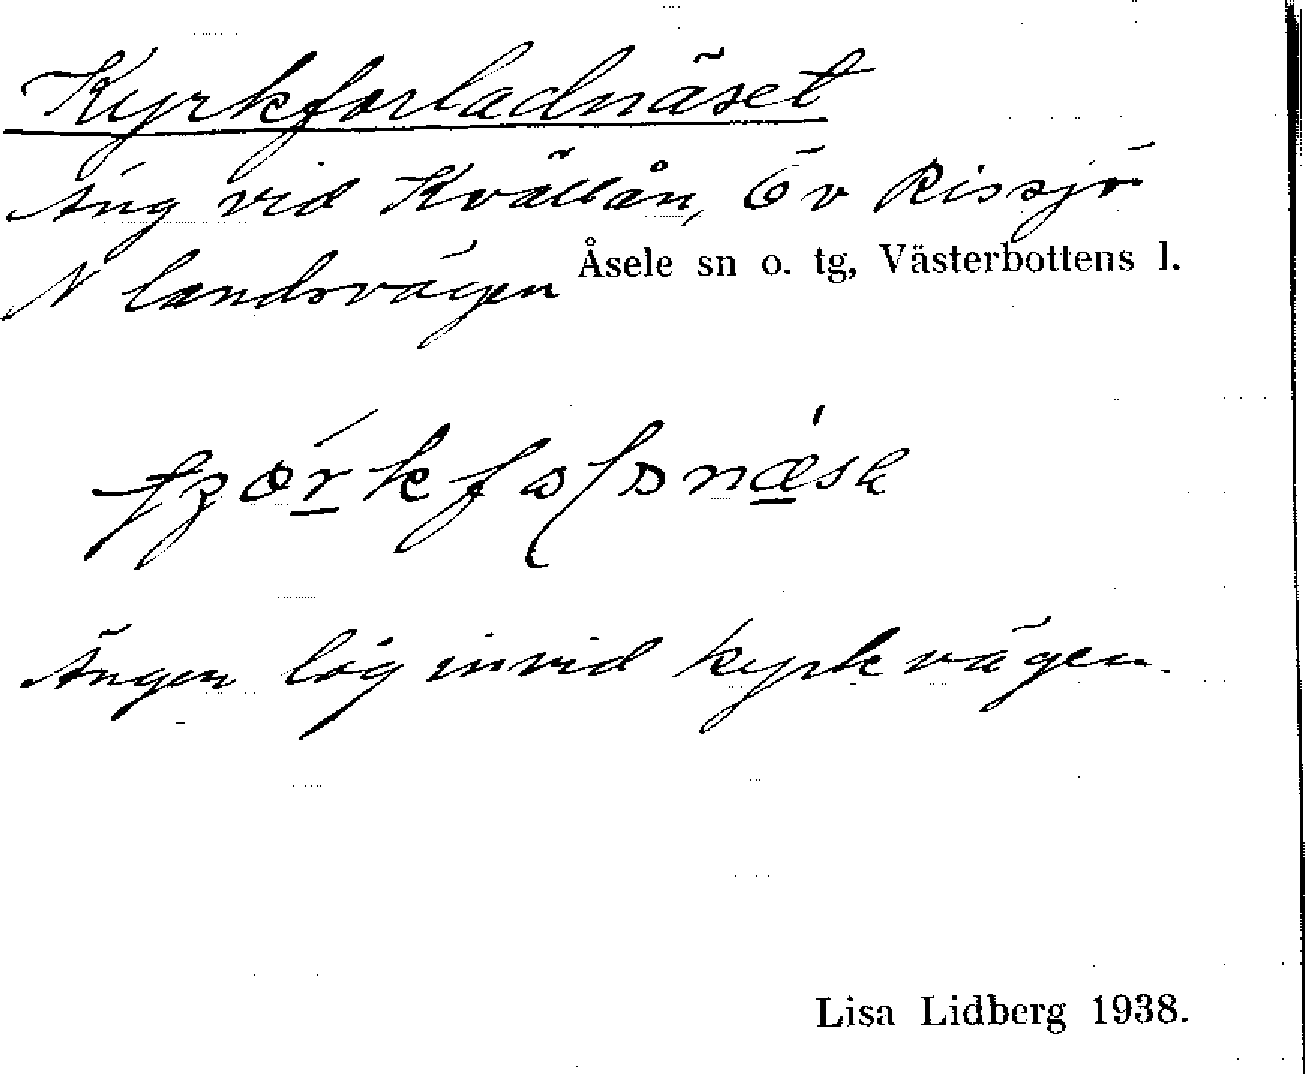 Kyrkforladnäset
Äng vid Kvällån, Öv Rissjö
Åsele sn o. tg, Västerbottens l.
N landsvägen
Ängen låg invid kyrkvägen.
Lisa Lidberg 1938.